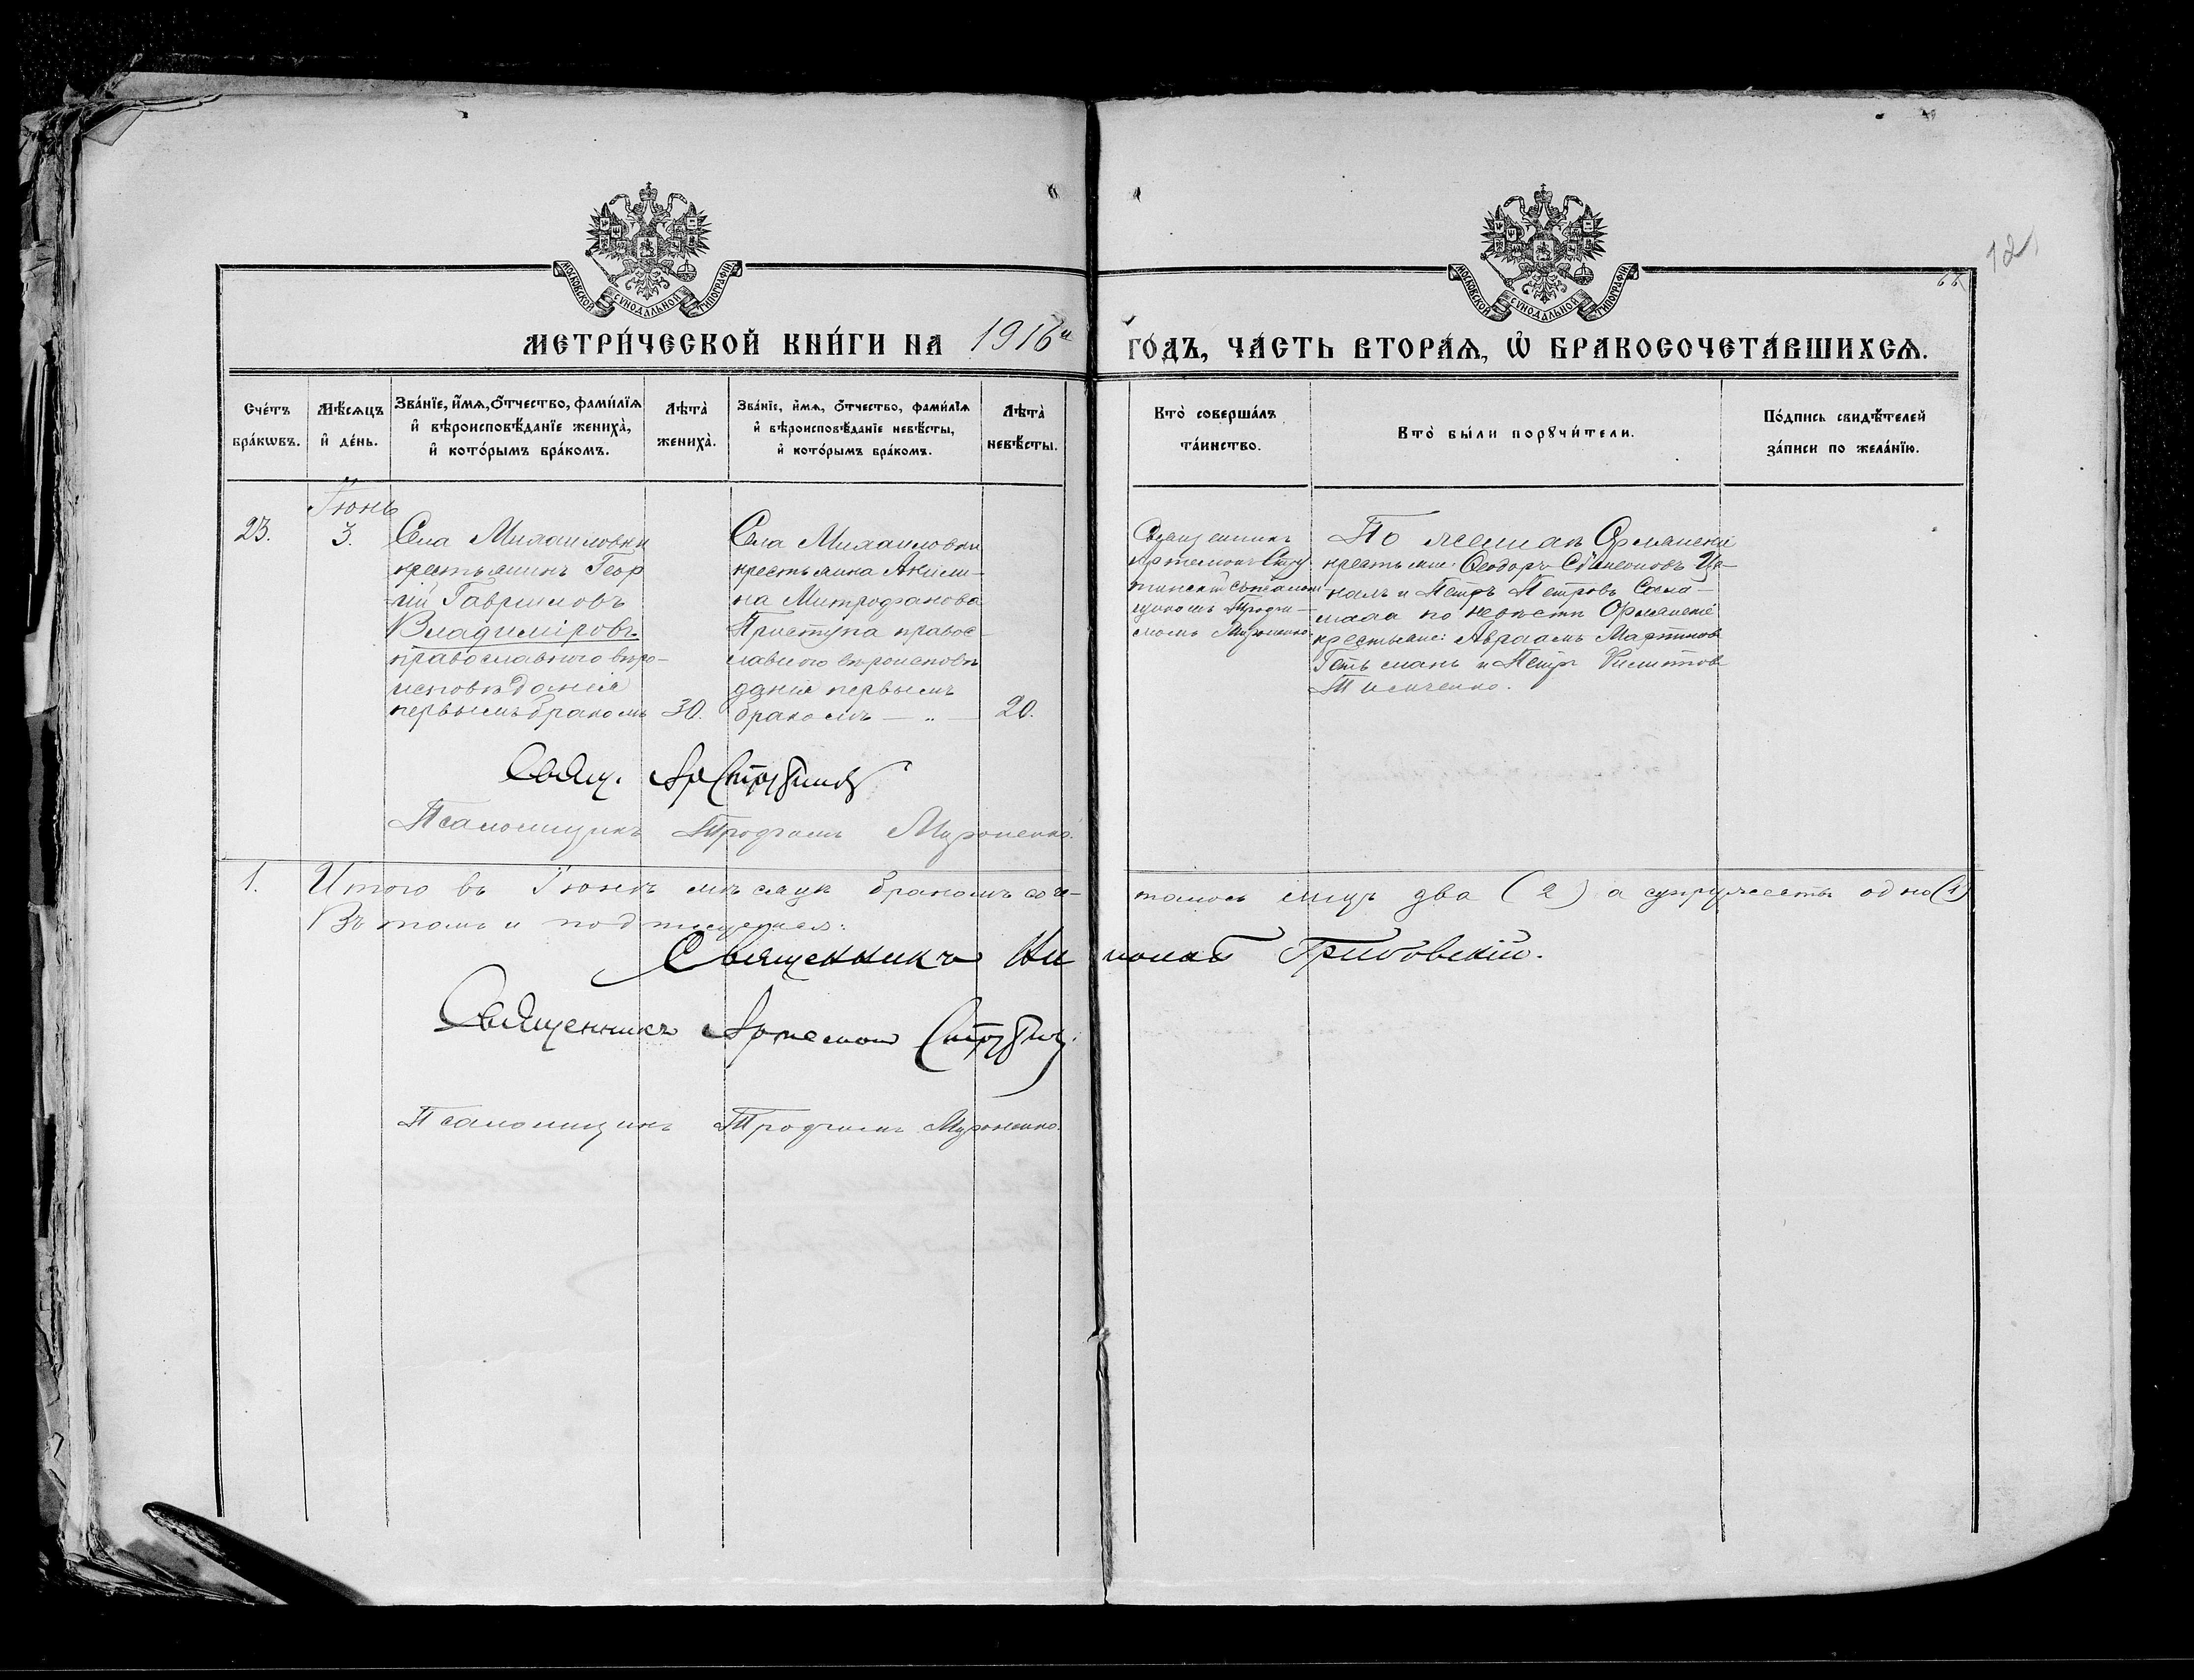 МОСКОВСКОЙ СѴНОДАЛЬНОЙ ТИПОГРАФІИ
МОСКОВСКОЙ СѴНОДАЛЬНОЙ ТИПОГРАФІИ
МЕТРИ́ЧЕСКОЙ КНИ́ГИ НА 1916й ГО́ДЪ, ЧА́СТЬ ВТОРА́Ѧ, Ѡ҆ БРАКОСОЧЕТА́ВШИХСѦ.
Сче́тъ
бра́кѡвъ.
Мѣ́сѧцъ
и҆ де́нь.
Зва́нїе, и҆́мѧ, ѻ҆́тчество, фами́лїѧ
и҆ вѣроисповѣ́данїе жениха̀,
и҆ кото́рымъ бра́комъ.
Лѣ́та
жениха̀.
Зва́нїе, и҆́мѧ, ѻ҆́тчество, фами́лїѧ
и҆ вѣроисповѣ́данїе невѣ́сты,
и҆ кото́рымъ бра́комъ.
Лѣ́та
невѣ́сты.
Кто̀ соверша́лъ
та́инство.
Кто̀ бы́ли порꙋчи́тели.
По́дпись свидѣ́телей
за́писи по жела́нїю.
23.
Іюнь
3.
Села Михаиловки
крестьянинъ Геор
гій Гавриловъ
Владиміровъ
православного веро-
исповѣданія
первымъ бракомъ
30.
Села Михаиловки
крестьянка Акили-
на Митрофанова
Приступа правос-
лавного вероисповѣ
данія первымъ
бракомъ — „ —
20.
Священникъ
Артемонъ
съ псалом-
щикомъ Трофи-
момъ Мироненко.
По женихѣ Орлянскіе
крестьяне: Ѳеодоръ Сѵмеоновъ
и Петръ Петровъ
по невѣсти Орлянскіе
крестьяне: Авраамъ Мартиновъ
Гетьманъ и Петръ
Тимченко.
Свящ. Ар
Псаломщикъ Трофимъ Мироненко.
1. Итого въ Іюнѣ мѣсяцѣ бракомъ соче-талось лицъ два (2) а супружествъ одно (1)
Въ томъ и подписуемся:
Священникъ Николай Грибовскій.
Священникъ Артемон
Псаломщикъ Трофимъ Мироненко.